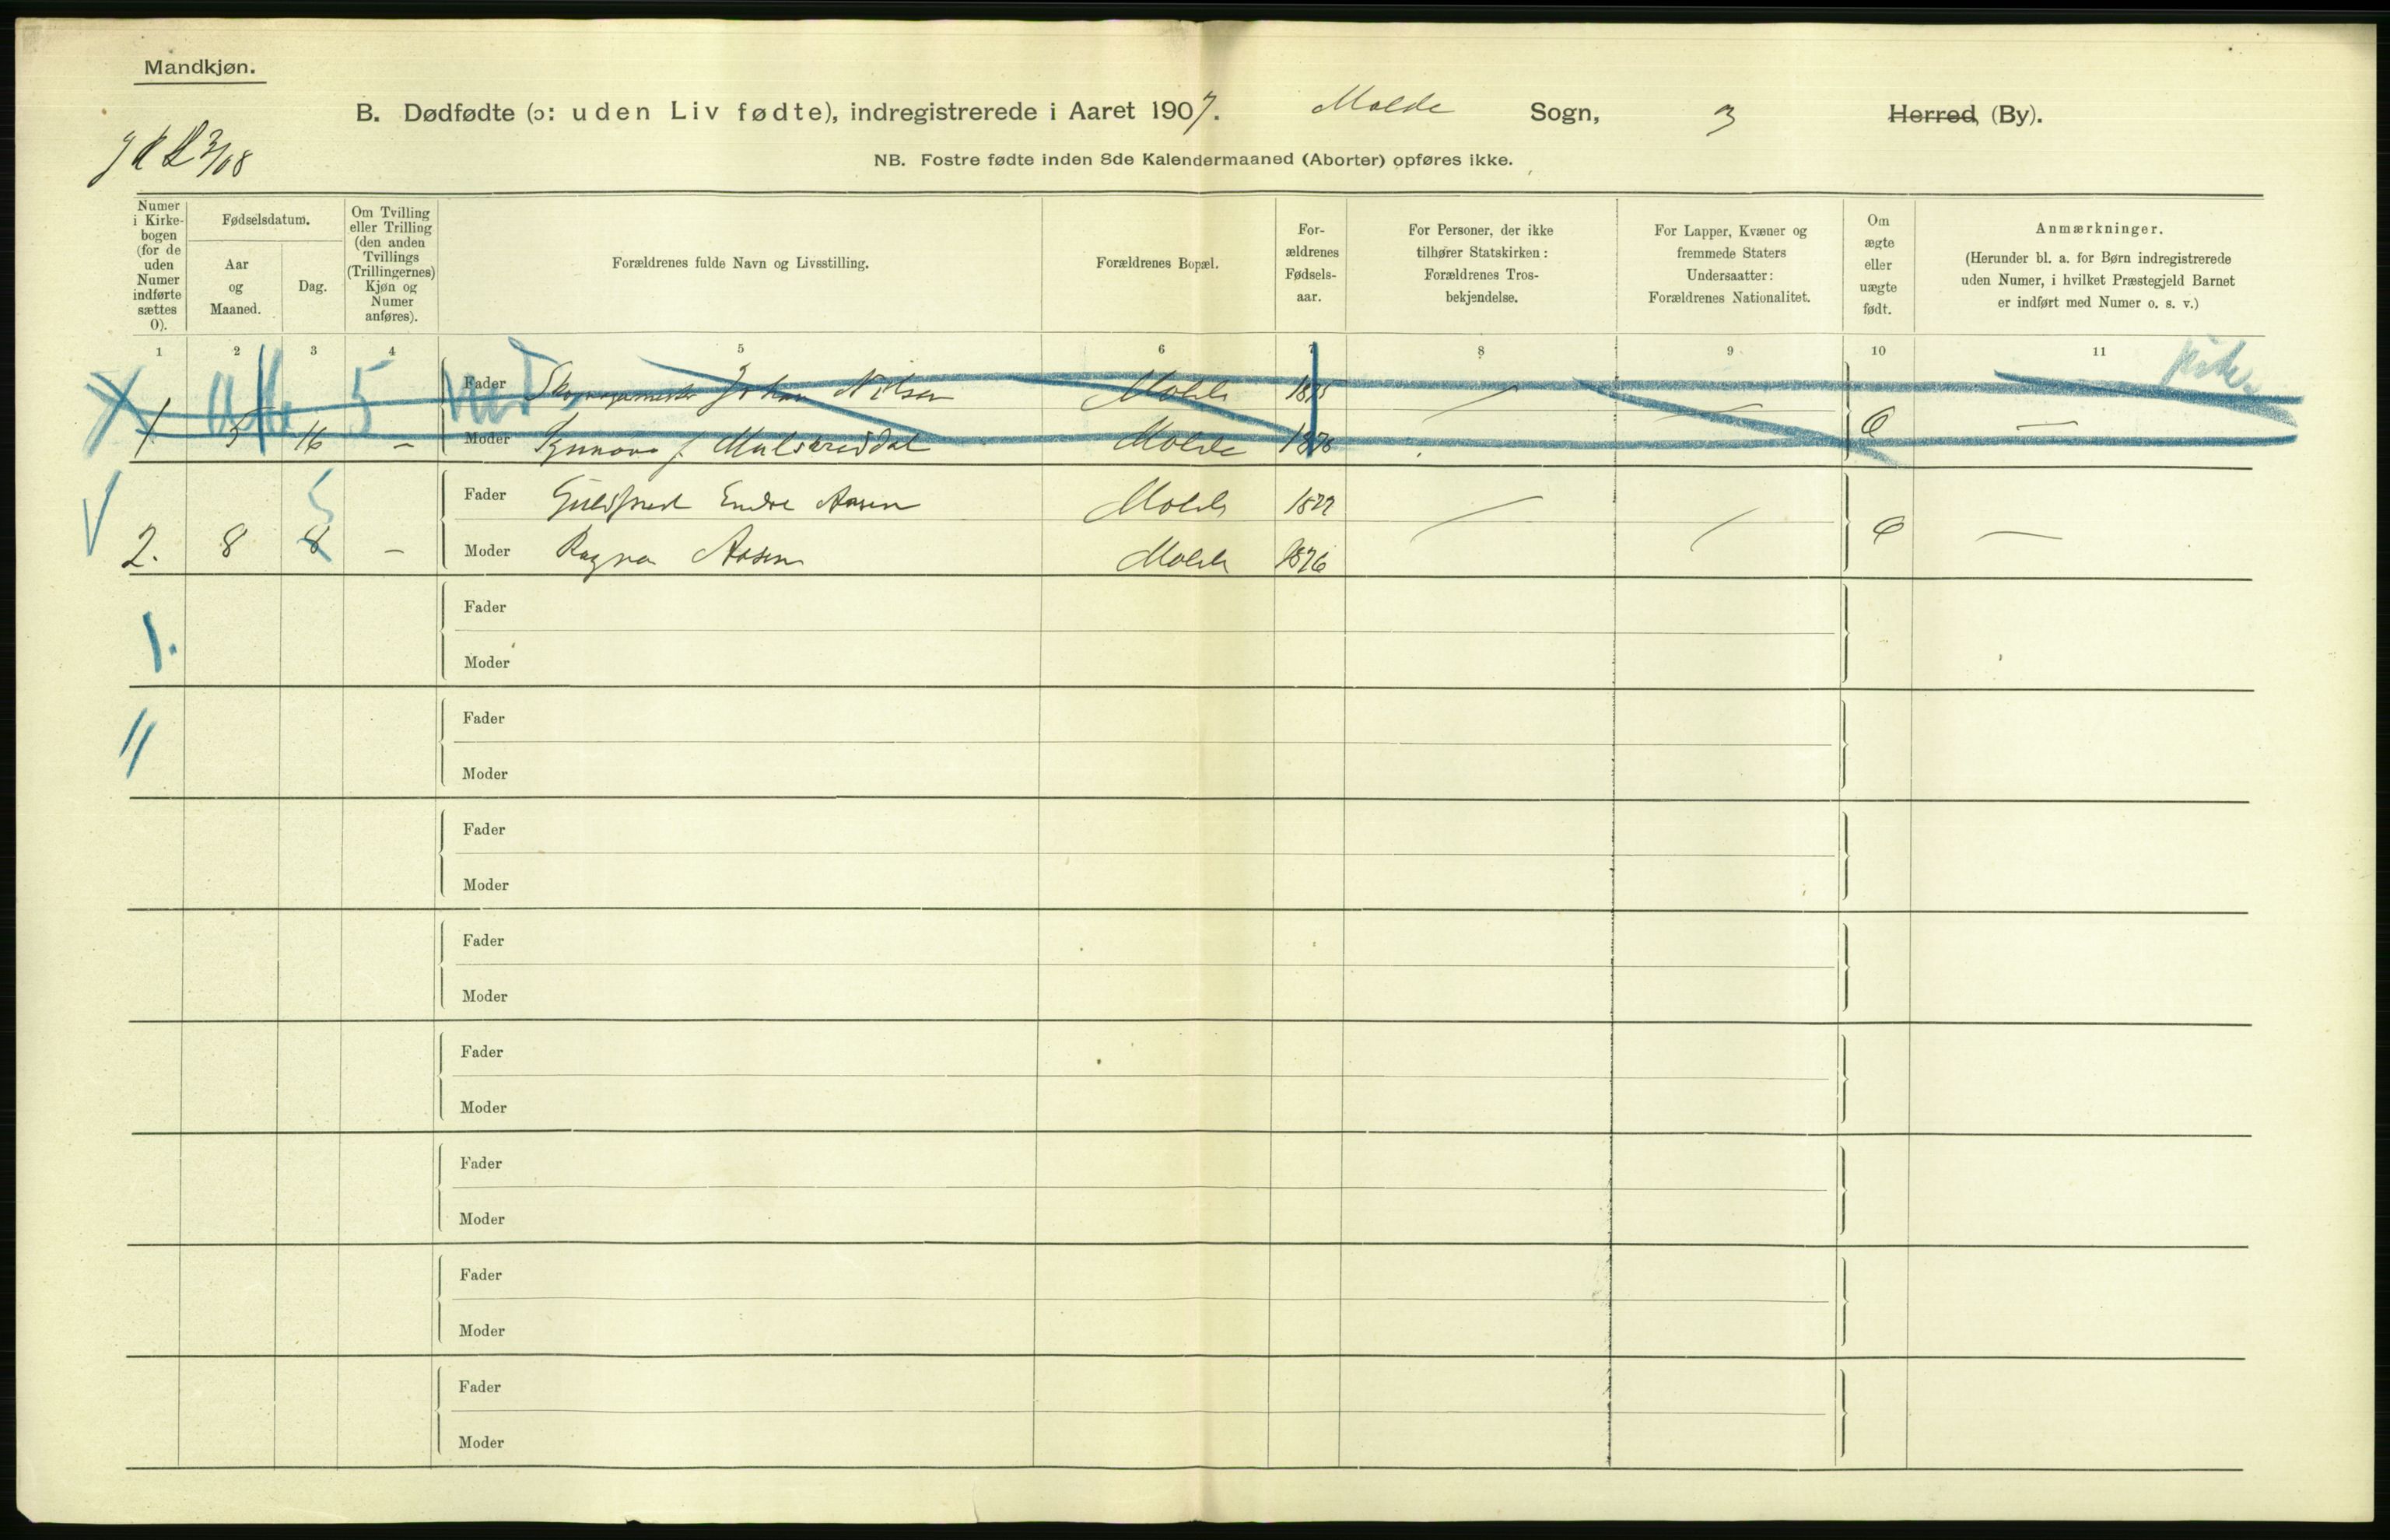 Mandkjøn.
B. Dødfødte (ɔ: uden Liv fødte), indregistrerede i Aaret 1907. Molde Sogn, 3 Herred (By).
NB. Fostre fødte inden 8de Kalendermaaned (Aborter) opføres ikke.
Numer i Kirkebogen (for de uden Numer indførte sættes 0).
Fødselsdatum.
Aar og Maaned.
Dag.
Om Tvilling eller Trilling (den anden Tvillings (Trillingernes) Kjøn og Numer anføres).
Forældrenes fulde Navn og Livsstilling.
Forældrenes Bopæl.
For-
ældrenes
Fødsels-
aar.
For Personer, der ikke
tilhører Statskirken:
Forældrenes Tros-
bekjendelse.
For Lapper, Kvæner og
fremmede Staters
Undersaatter:
Forældrenes Nationalitet.
Om
ægte
eller
uægte
født.
Anmærkninger.
(Herunder bl. a. for Børn indregistrerede
uden Numer, i hvilket Præstegjeld Barnet
er indført med Numer o. s. v.)
1 2 3 4 5 6 7 8 9 10 11
Fader Johan Nilsen Molde 1875
1 5 16 – Moder Molde 1878 –
Fader Endre Aasen Molde 1877
2. 8 8 – Moder Ragna Aasen Molde 1876 –
Fader
1.
Moder
Fader
Moder
Fader
Moder
Fader
Moder
Fader
Moder
Fader
Moder
Fader
Moder
Fader
Moder